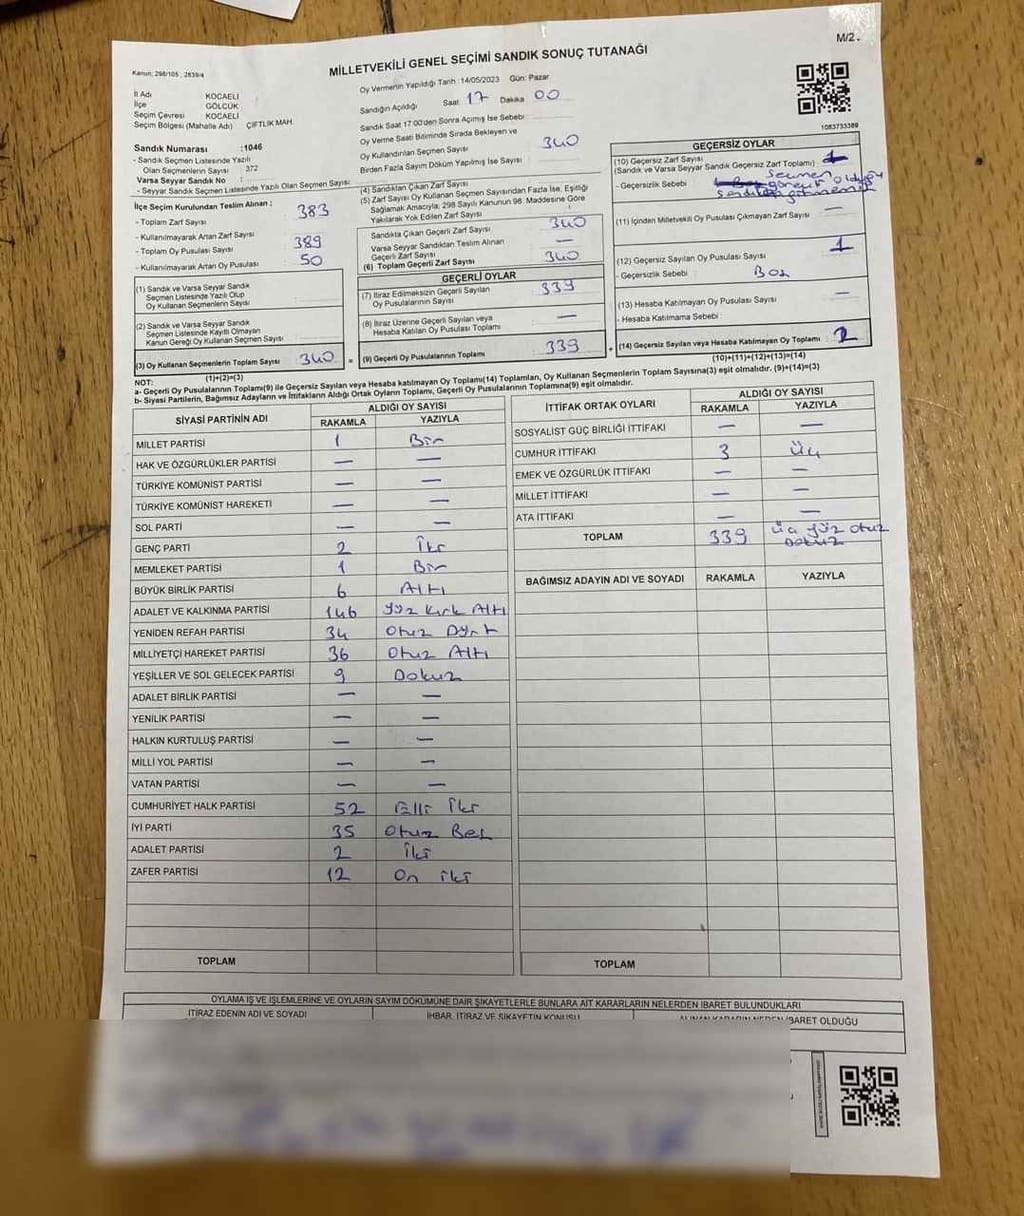 M/2.
MİLLETVEKİLİ GENEL SEÇİMİ SANDIK SONUÇ TUTANAĞI
Kanun: 298/105 , 2839/4
İl Adı KOCAELİ
İlçe GÖLCÜK
Seçim Çevresi KOCAELİ
Seçim Bölgesi (Mahalle Adı) ÇİFTLİK MAH.
Sandık Numarası :1046
- Sandık Seçmen Listesinde Yazılı
Olan Seçmenlerin Sayısı 372
Varsa Seyyar Sandık No :
- Seyyar Sandık Seçmen Listesinde Yazılı Olan Seçmen Sayısı
İlçe Seçim Kurulundan Teslim Alınan ;
- Toplam Zarf Sayısı 383
- Kullanılmayarak Artan Zarf Sayısı
- Toplam Oy Pusulası Sayısı 389
- Kullanılmayarak Artan Oy Pusulası 50
(1) Sandık ve Varsa Seyyar Sandık
Seçmen Listesinde Yazılı Olup
Oy Kullanan Seçmenlerin Sayısı
(2) Sandık ve Varsa Seyyar Sandık
Seçmen Listesinde Kayıtlı Olmayan
Kanun Gereği Oy Kullanan Seçmen Sayısı
(3) Oy Kullanan Seçmenlerin Toplam Sayısı 340
(1)+(2)=(3)
Oy Vermenin Yapıldığı Tarih :14/05/2023 Gün: Pazar
Sandığın Açıldığı Saat 17 Dakika 00
Sandık Saat 17:00'den Sonra Açılmış İse Sebebi
Oy Verme Saati Bitiminde Sırada Bekleyen ve
Oy Kullandırılan Seçmen Sayısı 340
Birden Fazla Sayım Döküm Yapılmış İse Sayısı
(4) Sandıktan Çıkan Zarf Sayısı
(5) Zarf Sayısı Oy Kullanan Seçmen Sayısından Fazla İse, Eşitliği
Sağlamak Amacıyla, 298 Sayılı Kanunun 98. Maddesine Göre
Yakılarak Yok Edilen Zarf Sayısı
Sandıkta Çıkan Geçerli Zarf Sayısı 340
Varsa Seyyar Sandıktan Teslim Alınan
Geçerli Zarf Sayısı —
(6) Toplam Geçerli Zarf Sayısı 340
GEÇERLİ OYLAR
(7) İtiraz Edilmeksizin Geçerli Sayılan
Oy Pusulalarının Sayısı 339
(8) İtiraz Üzerine Geçerli Sayılan veya
Hesaba Katılan Oy Pusulası Toplamı —
(9) Geçerli Oy Pusulalarının Toplamı 339
1083733389
GEÇERSİZ OYLAR
(10) Geçersiz Zarf Sayısı
(Sandık ve Varsa Seyyar Sandık Geçersiz Zarf Toplamı) 1
- Geçersizlik Sebebi Seçmen
görevli olduğu
(11) İçinden Milletvekili Oy Pusulası Çıkmayan Zarf Sayısı —
(12) Geçersiz Sayılan Oy Pusulası Sayısı 1
- Geçersizlik Sebebi Boş
(13) Hesaba Katılmayan Oy Pusulası Sayısı —
- Hesaba Katılmama Sebebi
(14) Geçersiz Sayılan veya Hesaba Katılmayan Oy Toplamı 2
(10)+(11)+(12)+(13)=(14)
NOT:
a- Geçerli Oy Pusulalarının Toplamı(9) ile Geçersiz Sayılan veya Hesaba katılmayan Oy Toplamı(14) Toplamları, Oy Kullanan Seçmenlerin Toplam Sayısına(3) eşit olmalıdır. (9)+(14)=(3)
b- Siyasi Partilerin, Bağımsız Adayların ve İttifakların Aldığı Ortak Oyların Toplamı, Geçerli Oy Pusulalarının Toplamına(9) eşit olmalıdır.
SİYASİ PARTİNİN ADI ALDIĞI OY SAYISI
RAKAMLA YAZIYLA
MİLLET PARTİSİ 1 Bir
HAK VE ÖZGÜRLÜKLER PARTİSİ — —
TÜRKİYE KOMÜNİST PARTİSİ — —
TÜRKİYE KOMÜNİST HAREKETİ — —
SOL PARTİ — —
GENÇ PARTİ 2 İki
MEMLEKET PARTİSİ 1 Bir
BÜYÜK BİRLİK PARTİSİ 6 Altı
ADALET VE KALKINMA PARTİSİ 146 Yüz Kırk Altı
YENİDEN REFAH PARTİSİ 34 Otuz Dört
MİLLİYETÇİ HAREKET PARTİSİ 36 Otuz Altı
YEŞİLLER VE SOL GELECEK PARTİSİ 9 Dokuz
ADALET BİRLİK PARTİSİ — —
YENİLİK PARTİSİ — —
HALKIN KURTULUŞ PARTİSİ — —
MİLLİ YOL PARTİSİ — —
VATAN PARTİSİ — —
CUMHURİYET HALK PARTİSİ 52 Elli İki
İYİ PARTİ 35 Otuz Beş
ADALET PARTİSİ 2 İki
ZAFER PARTİSİ 12 On iki
TOPLAM
İTTİFAK ORTAK OYLARI ALDIĞI OY SAYISI
RAKAMLA YAZIYLA
SOSYALİST GÜÇ BİRLİĞİ İTTİFAKI — —
CUMHUR İTTİFAKI 3 Üç
EMEK VE ÖZGÜRLÜK İTTİFAKI — —
MİLLET İTTİFAKI — —
ATA İTTİFAKI — —
TOPLAM 339 Üç Yüz Otuz
Dokuz
BAĞIMSIZ ADAYIN ADI VE SOYADI RAKAMLA YAZIYLA
TOPLAM
OYLAMA İŞ VE İŞLEMLERİNE VE OYLARIN SAYIM DÖKÜMÜNE DAİR ŞİKAYETLERLE BUNLARA AİT KARARLARIN NELERDEN İBARET BULUNDUKLARI
İTİRAZ EDENİN ADI VE SOYADI İHBAR, İTİRAZ VE ŞİKAYETİN KONUSU ALINAN KARARIN NEDEN İBARET OLDUĞU